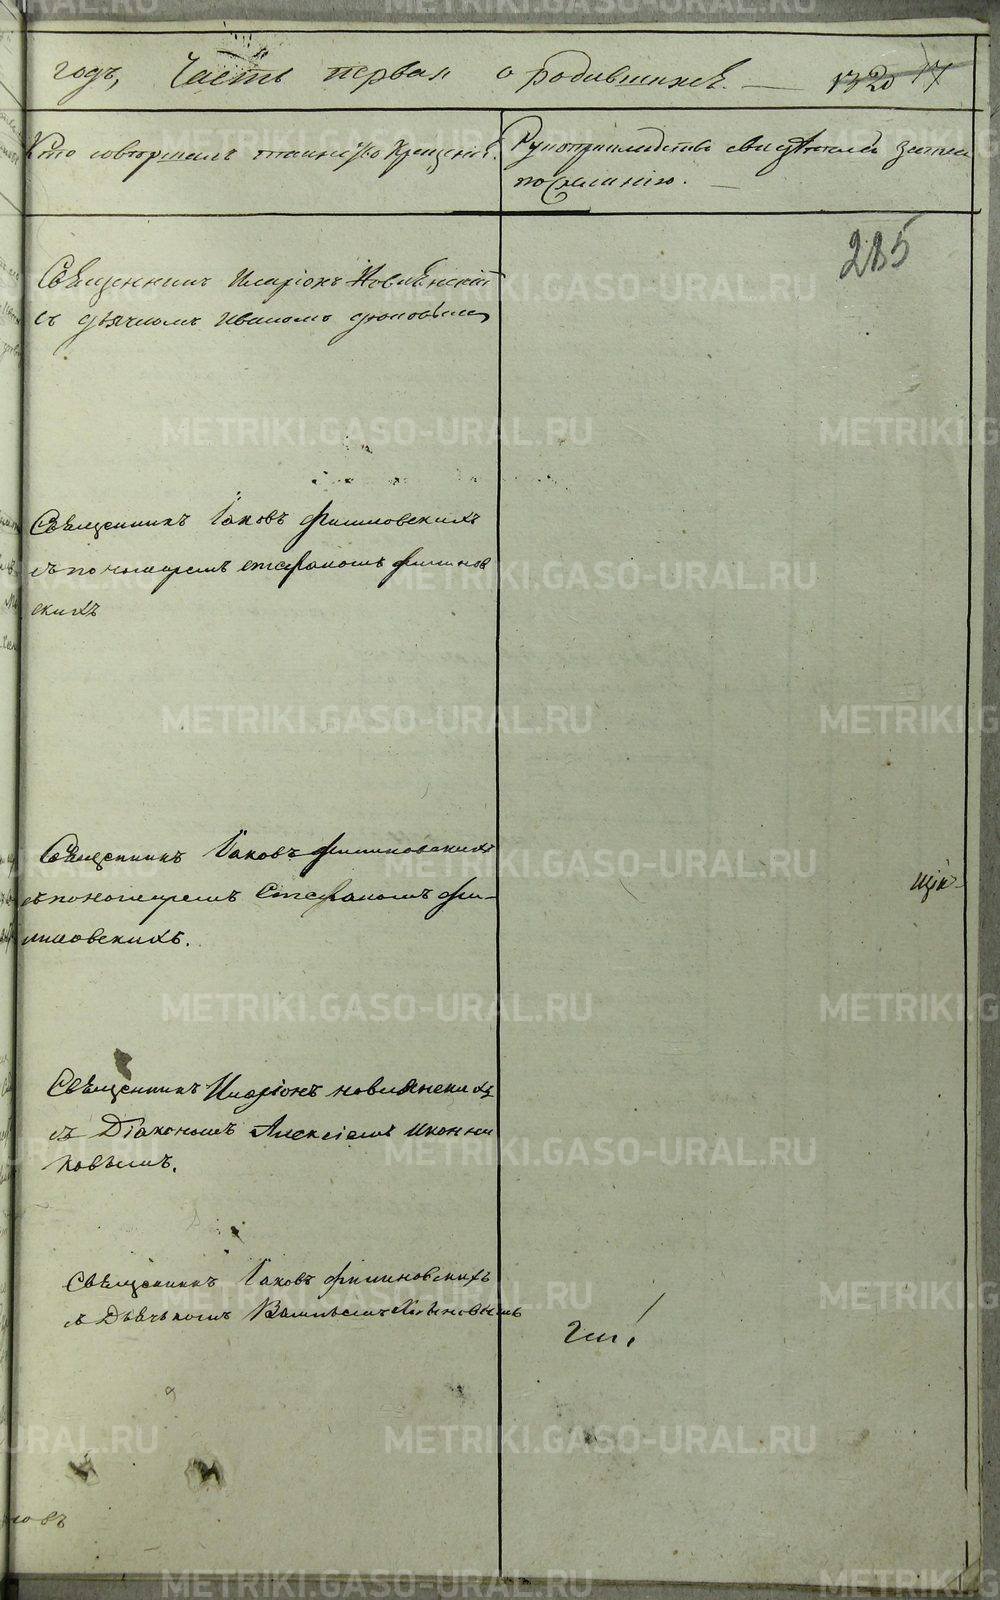 годъ, Часть первая о родившихся. — 1320 17
Кто совершалъ таинство Крещенія.
Рукоприкладство свидѣтелей записи
по желанію. —
285
Священникъ Иларіонъ
съ дьячкомъ Иваномъ
Священникъ Іаковъ Филиповскихъ
съ пономаремъ Стефаномъ Филипов
скихъ
Священникъ Іаковъ Филиповскихъ
съ пономаремъ Стефаномъ Фи-
липовскихъ.
Священникъ Иларіонъ
съ Діакономъ Алексіемъ Иконни
ковымъ.
Священникъ Іаковъ Филиповскихъ
METRIKI.GASO-URAL.RU